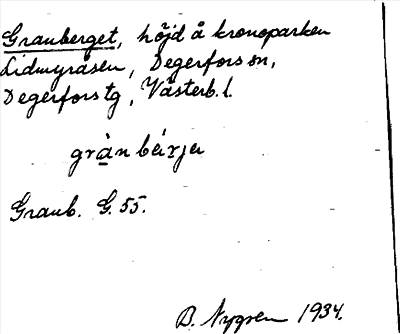 Granberget, höjd å kronoparken
Lidmyråsen, Degerfors sn,
Degerfors tg, Västerb. l.
gràn bérje
Granb. G. 55.
B. Nygren 1934.